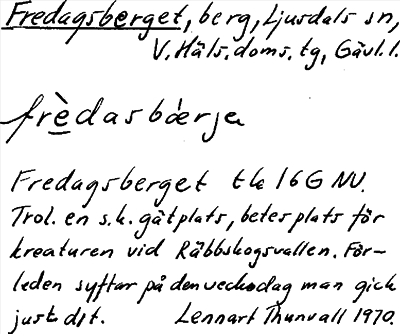 Fredagsberget, berg, Ljusdals sn,
V. Häls. doms. tg, Gävl. l.
frèdasbárje
Fredagsberget tk 16G NV.
Trol. en s.k. gåtplats, betesplats för
kreaturen vid Räbbskogsvallen. För-
leden syftar på den veckodag man gick
just dit. Lennart Thunvall 1970.